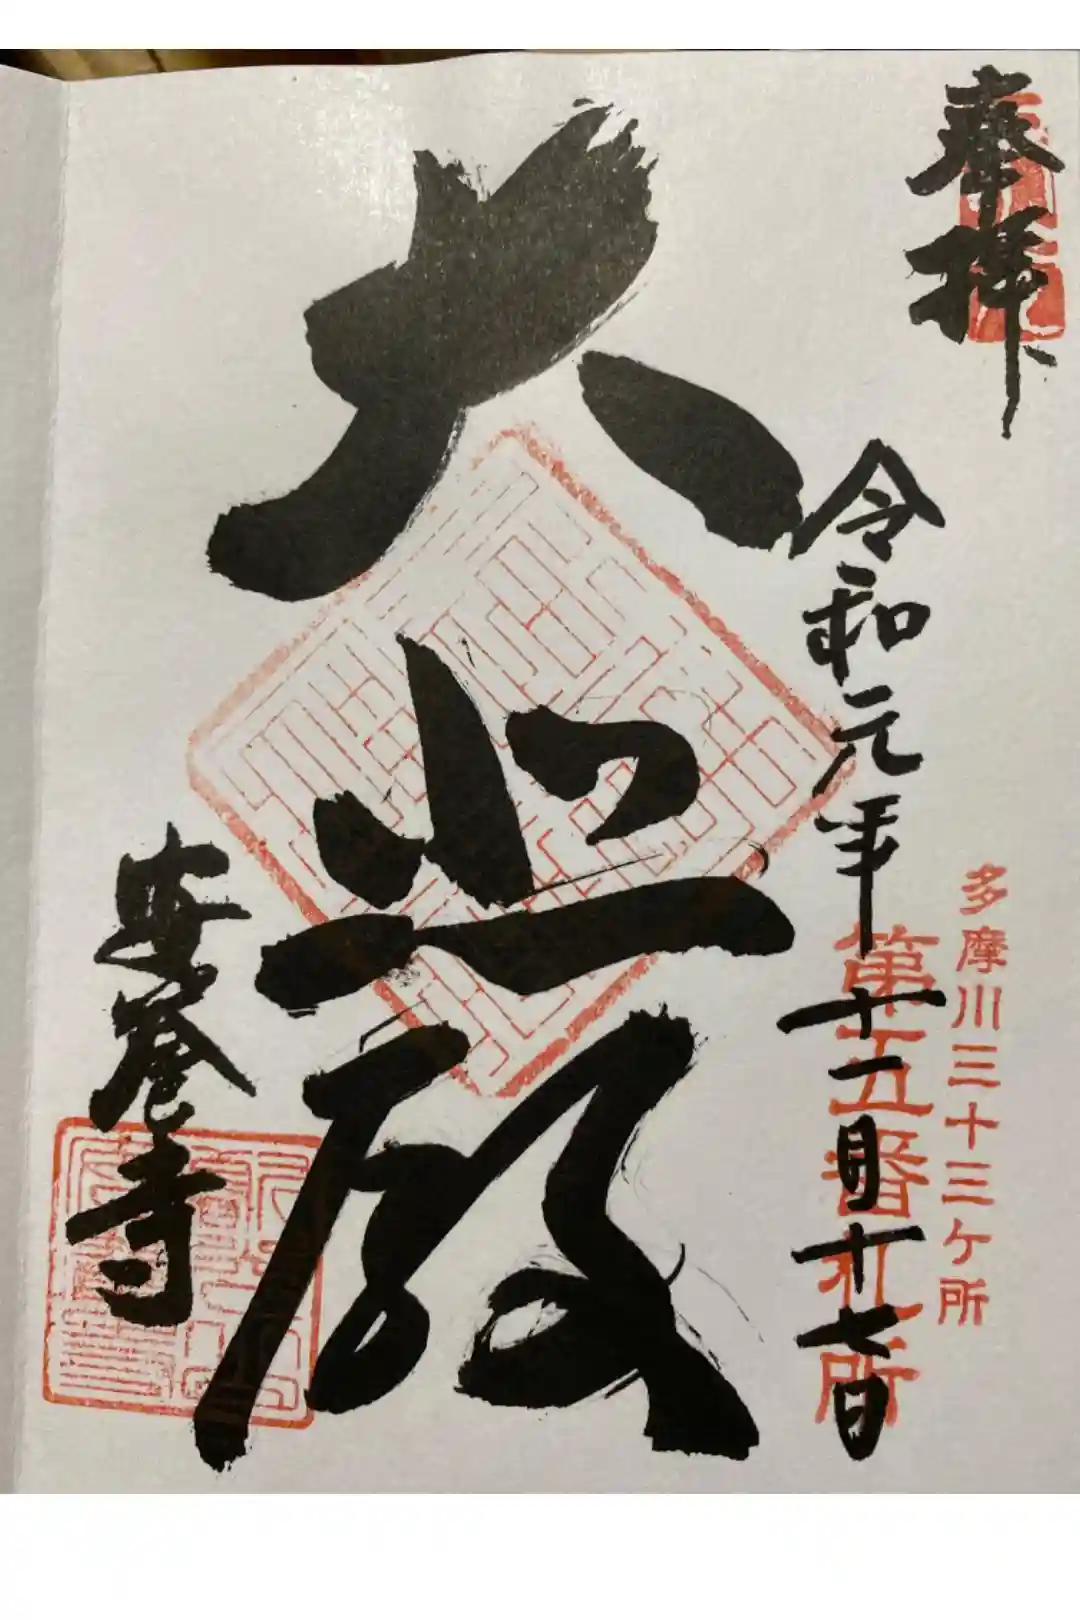 奉拝
多摩川三十三ヶ所
第五番札所
令和元年十一月十七日
大悲殿
安養寺